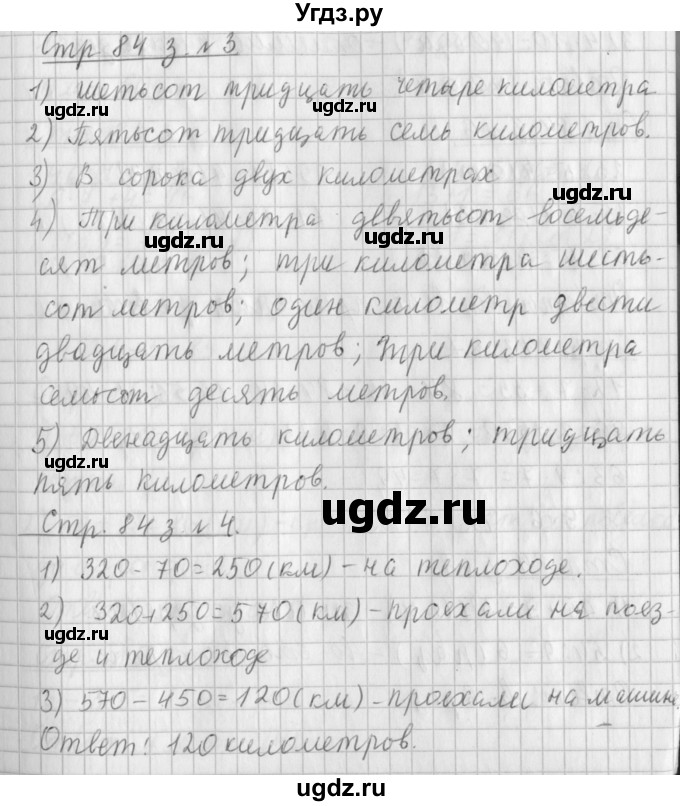 Угдз.ру
Стр 84 з. № 3
1) Шетьсот тридцать четыре километра
ugdz.ru
ugdz.ru
2) Пятьсот тридцать семь километров.
ugdz.ru
3) В сорока двух километрах
ugdz.ru
4) Три километра девятьсот восемьде-
ugdz.ru
сят метров; три километра шесть-
сот метров; один километр двести
двадцать метров; три километра
семьсот десять метров.
5) Двенадцать километров; тридцать
ugdz.ru
пять километров.
ugdz.ru
Стр. 84 з № 4.
1) 320 - 70 = 250 (км) - на теплоходе.
2) 320 + 250 = 570 (км) - проехали на поез-
ugdz.ru
де и теплоходе
3) 570 - 450 = 120 (км) - проехали на машин
Ответ: 120 километров.
ugdz.ru
ugdz.ru